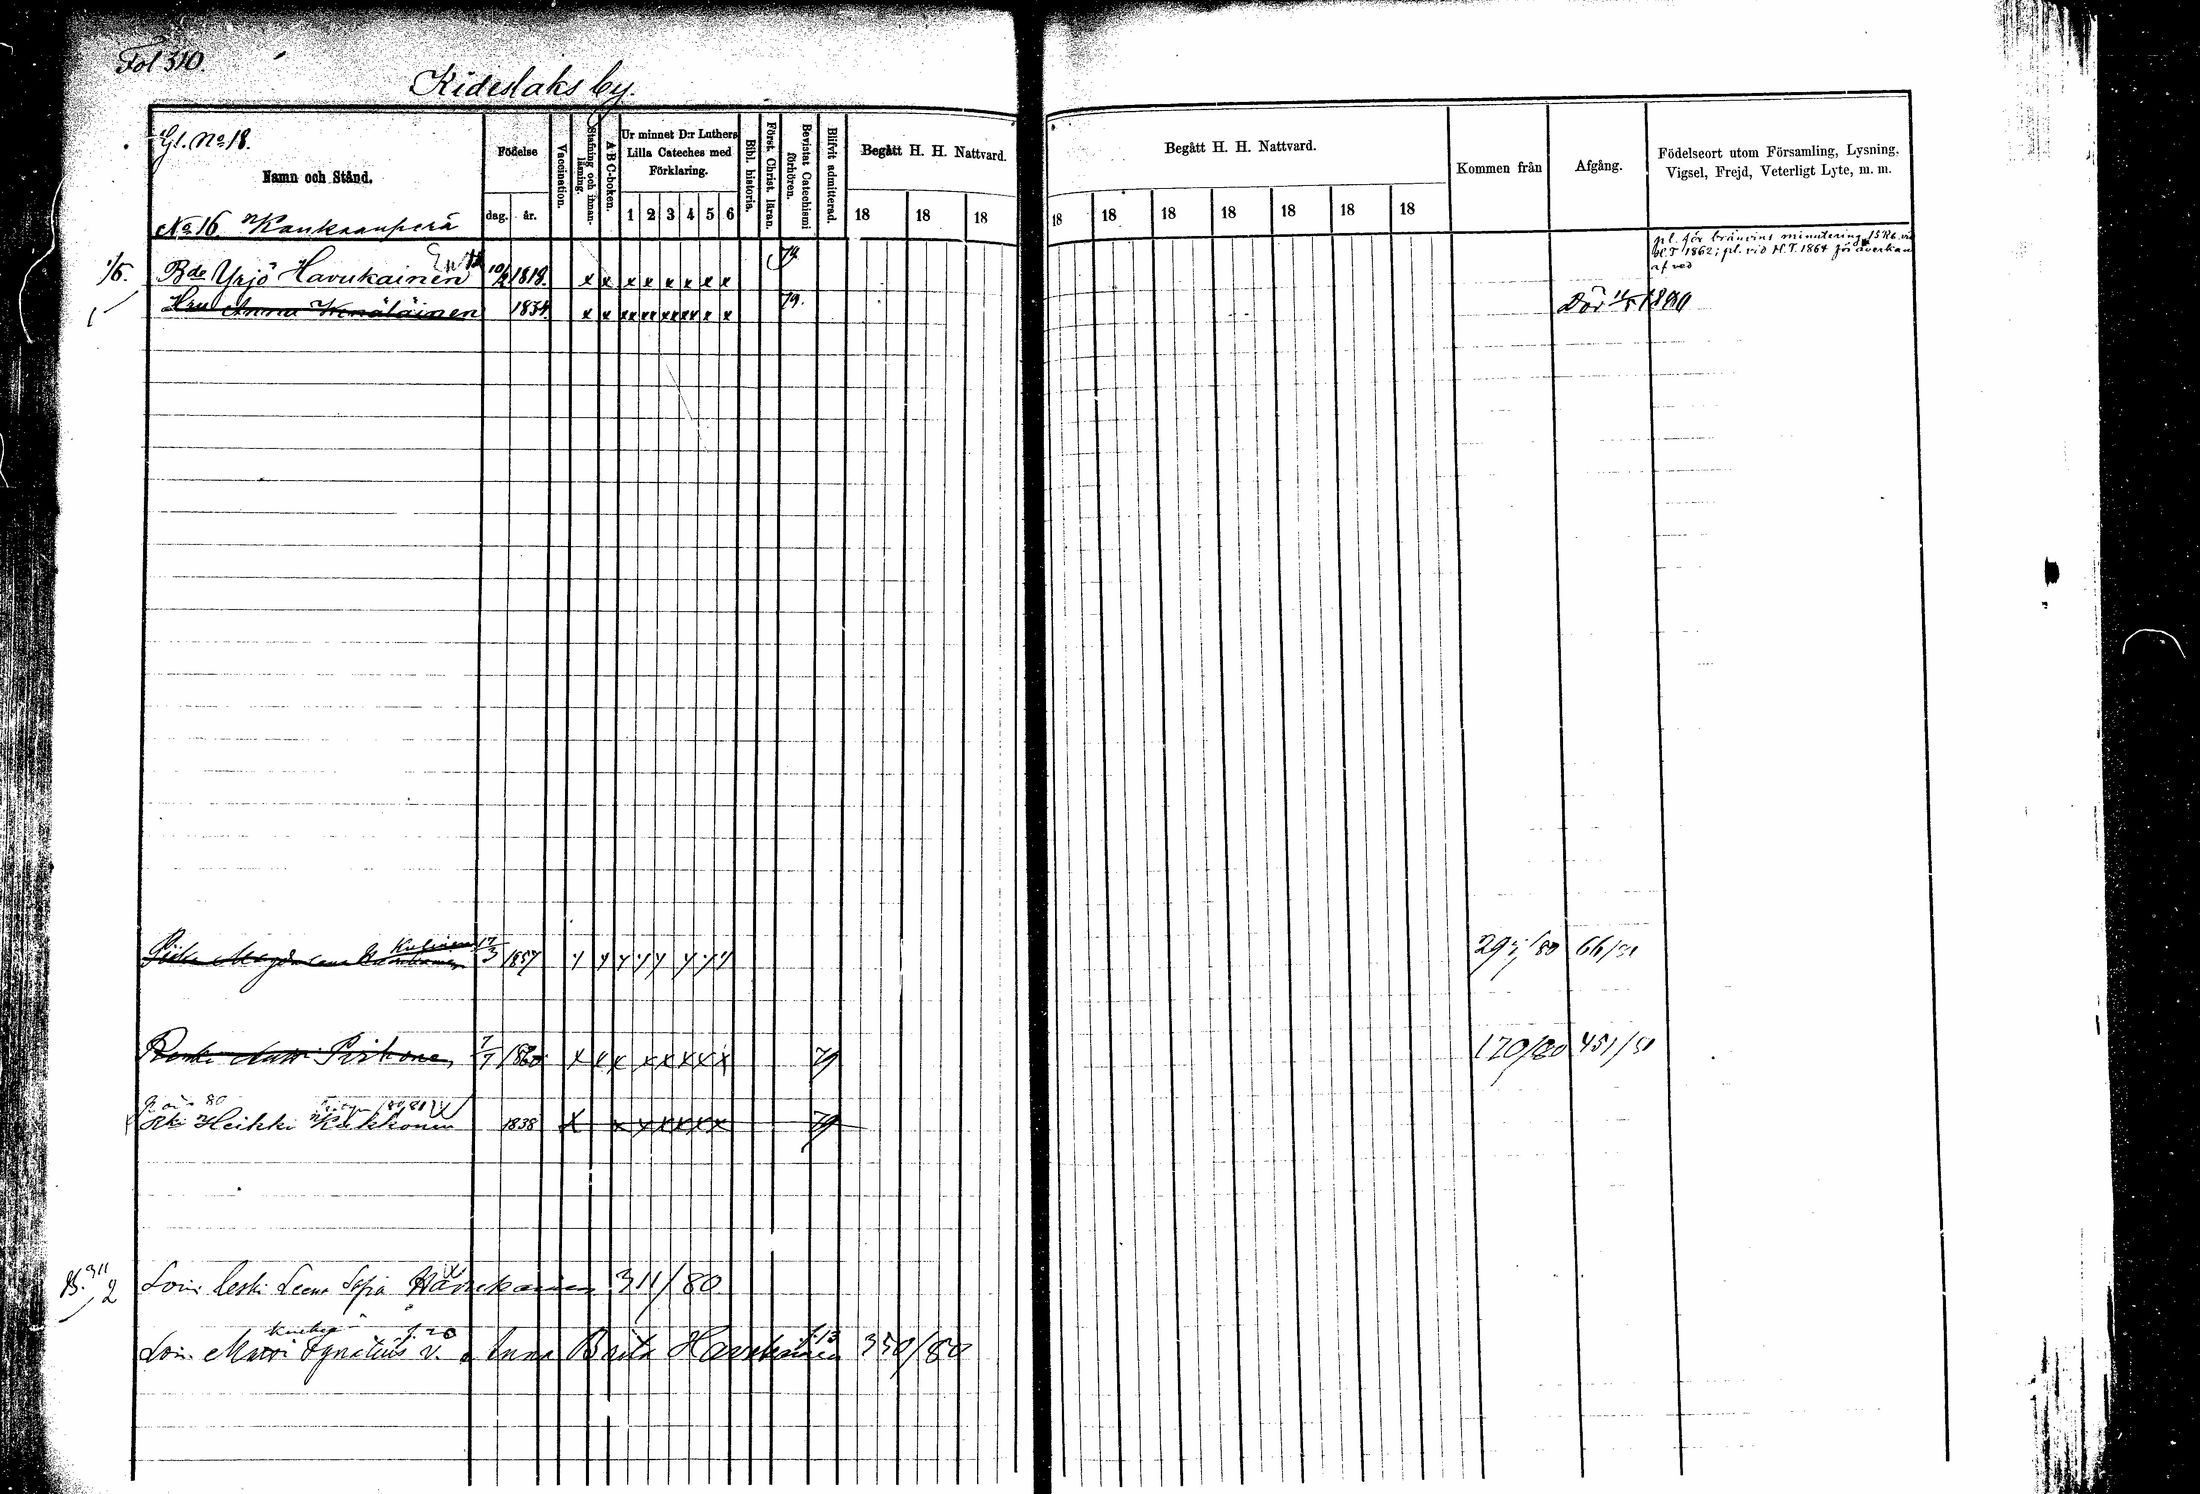 Fol 310.
Kideslaks by.
Gl. No 18.
Namn och Stånd.
Födelse
dag. år.
Vaccination.
Stafning och innanläsning.
A B C-boken.
Ur minnet D:r Luthers Lilla Cateches med Förklaring.
1 2 3 4 5 6
Bibl. historia.
Först. Christ. läran.
Bevistat Catechismi förhören.
Blifvit admitterad.
Begått H. H. Nattvard.
18 18 18
Begått H. H. Nattvard.
18 18 18 18 18 18 18
Kommen från
Afgång.
Födelseort utom Församling, Lysning, Vigsel, Frejd, Veterligt Lyte, m. m.
No 16. Kankaanperä
pl. för bränvins minutering 15 Rb. vid
H.T 1862; pl. vid H.T. 1864 för åverkan
af ved
1/6. Bde Yrjö Havukainen 1818. x x x x x x x x 79
Hru Anna 1834. 79. Död 1880
Piika 17/3 1857 /80 66/81
Renki Matti 7/7 1860 x x x x x x x x 79 170/80 451/81
80
Heikki Kukkonen 1838 x x x x x x x 79
B. 311 2 Loi: leski Leena Sofia Havukainen 311/80
Loi: Matti Ignatius v. Anna Brita Havukainen 350/80